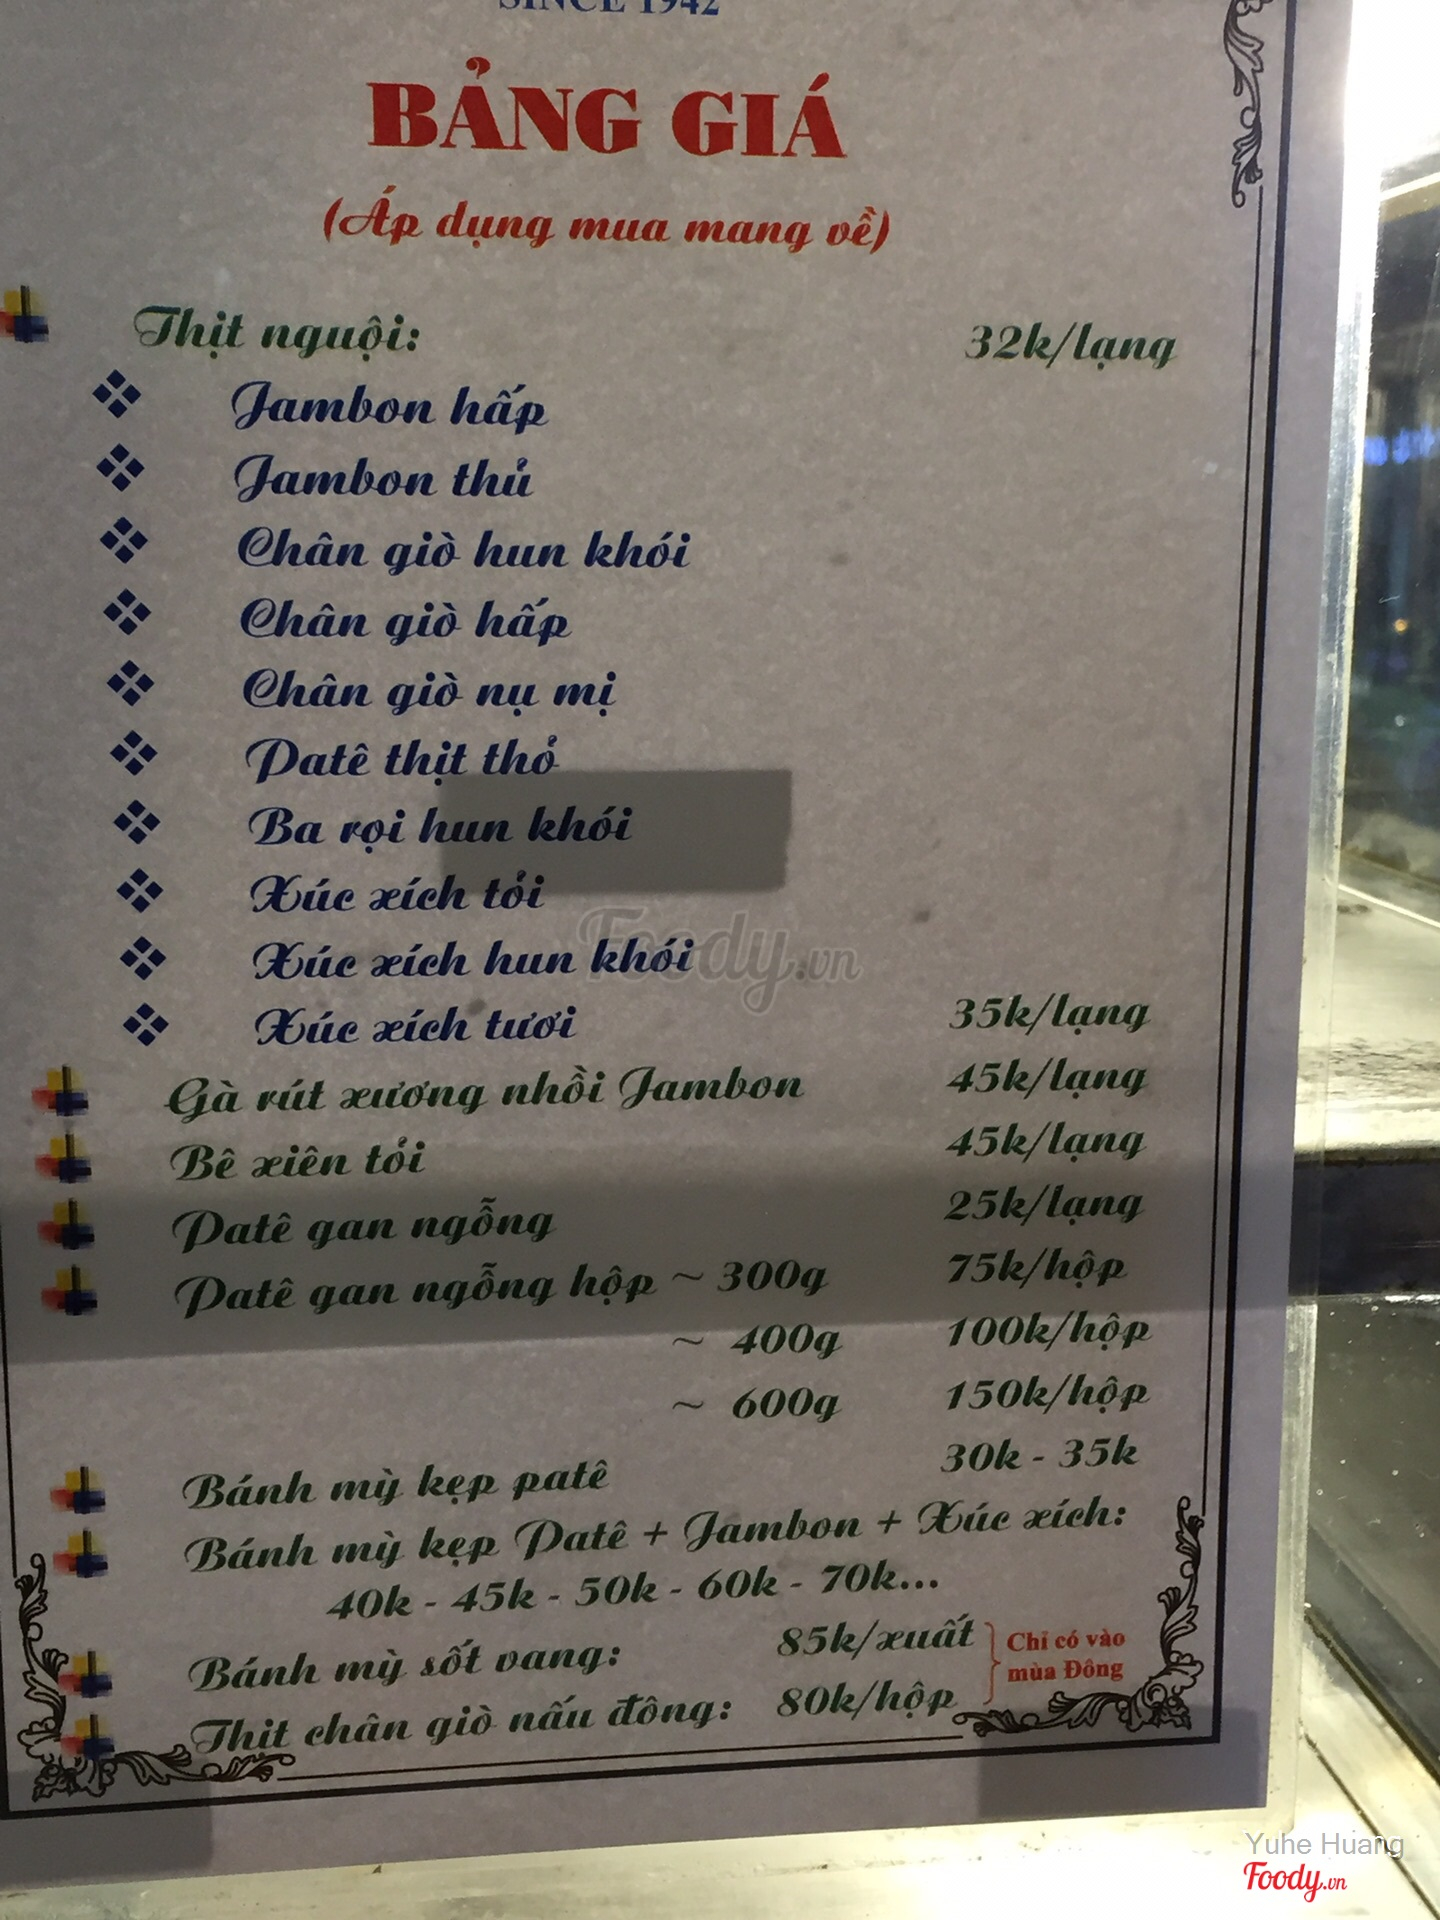 SINCE 1942
BẢNG GIÁ
(Áp dụng mua mang về)
Thịt nguội: 32k/lạng
Jambon hấp
Jambon thủ
Chân giò hun khói
Chân giò hấp
Chân giò nụ mị
Patê thịt thỏ
Ba rọi hun khói
Xúc xích tỏi
Xúc xích hun khói
Xúc xích tươi 35k/lạng
Gà rút xương nhồi Jambon 45k/lạng
Bê xiên tỏi 45k/lạng
Patê gan ngỗng 25k/lạng
Patê gan ngỗng hộp ~ 300g 75k/hộp
~ 400g 100k/hộp
~ 600g 150k/hộp
Bánh mỳ kẹp patê 30k - 35k
Bánh mỳ kẹp Patê + Jambon + Xúc xích:
40k - 45k - 50k - 60k - 70k...
Bánh mỳ sốt vang: 85k/xuất
Thịt chân giò nấu đông: 80k/hộp
Chỉ có vào
mùa Đông
Foody.vn
Yuhe Huang
Foody.vn